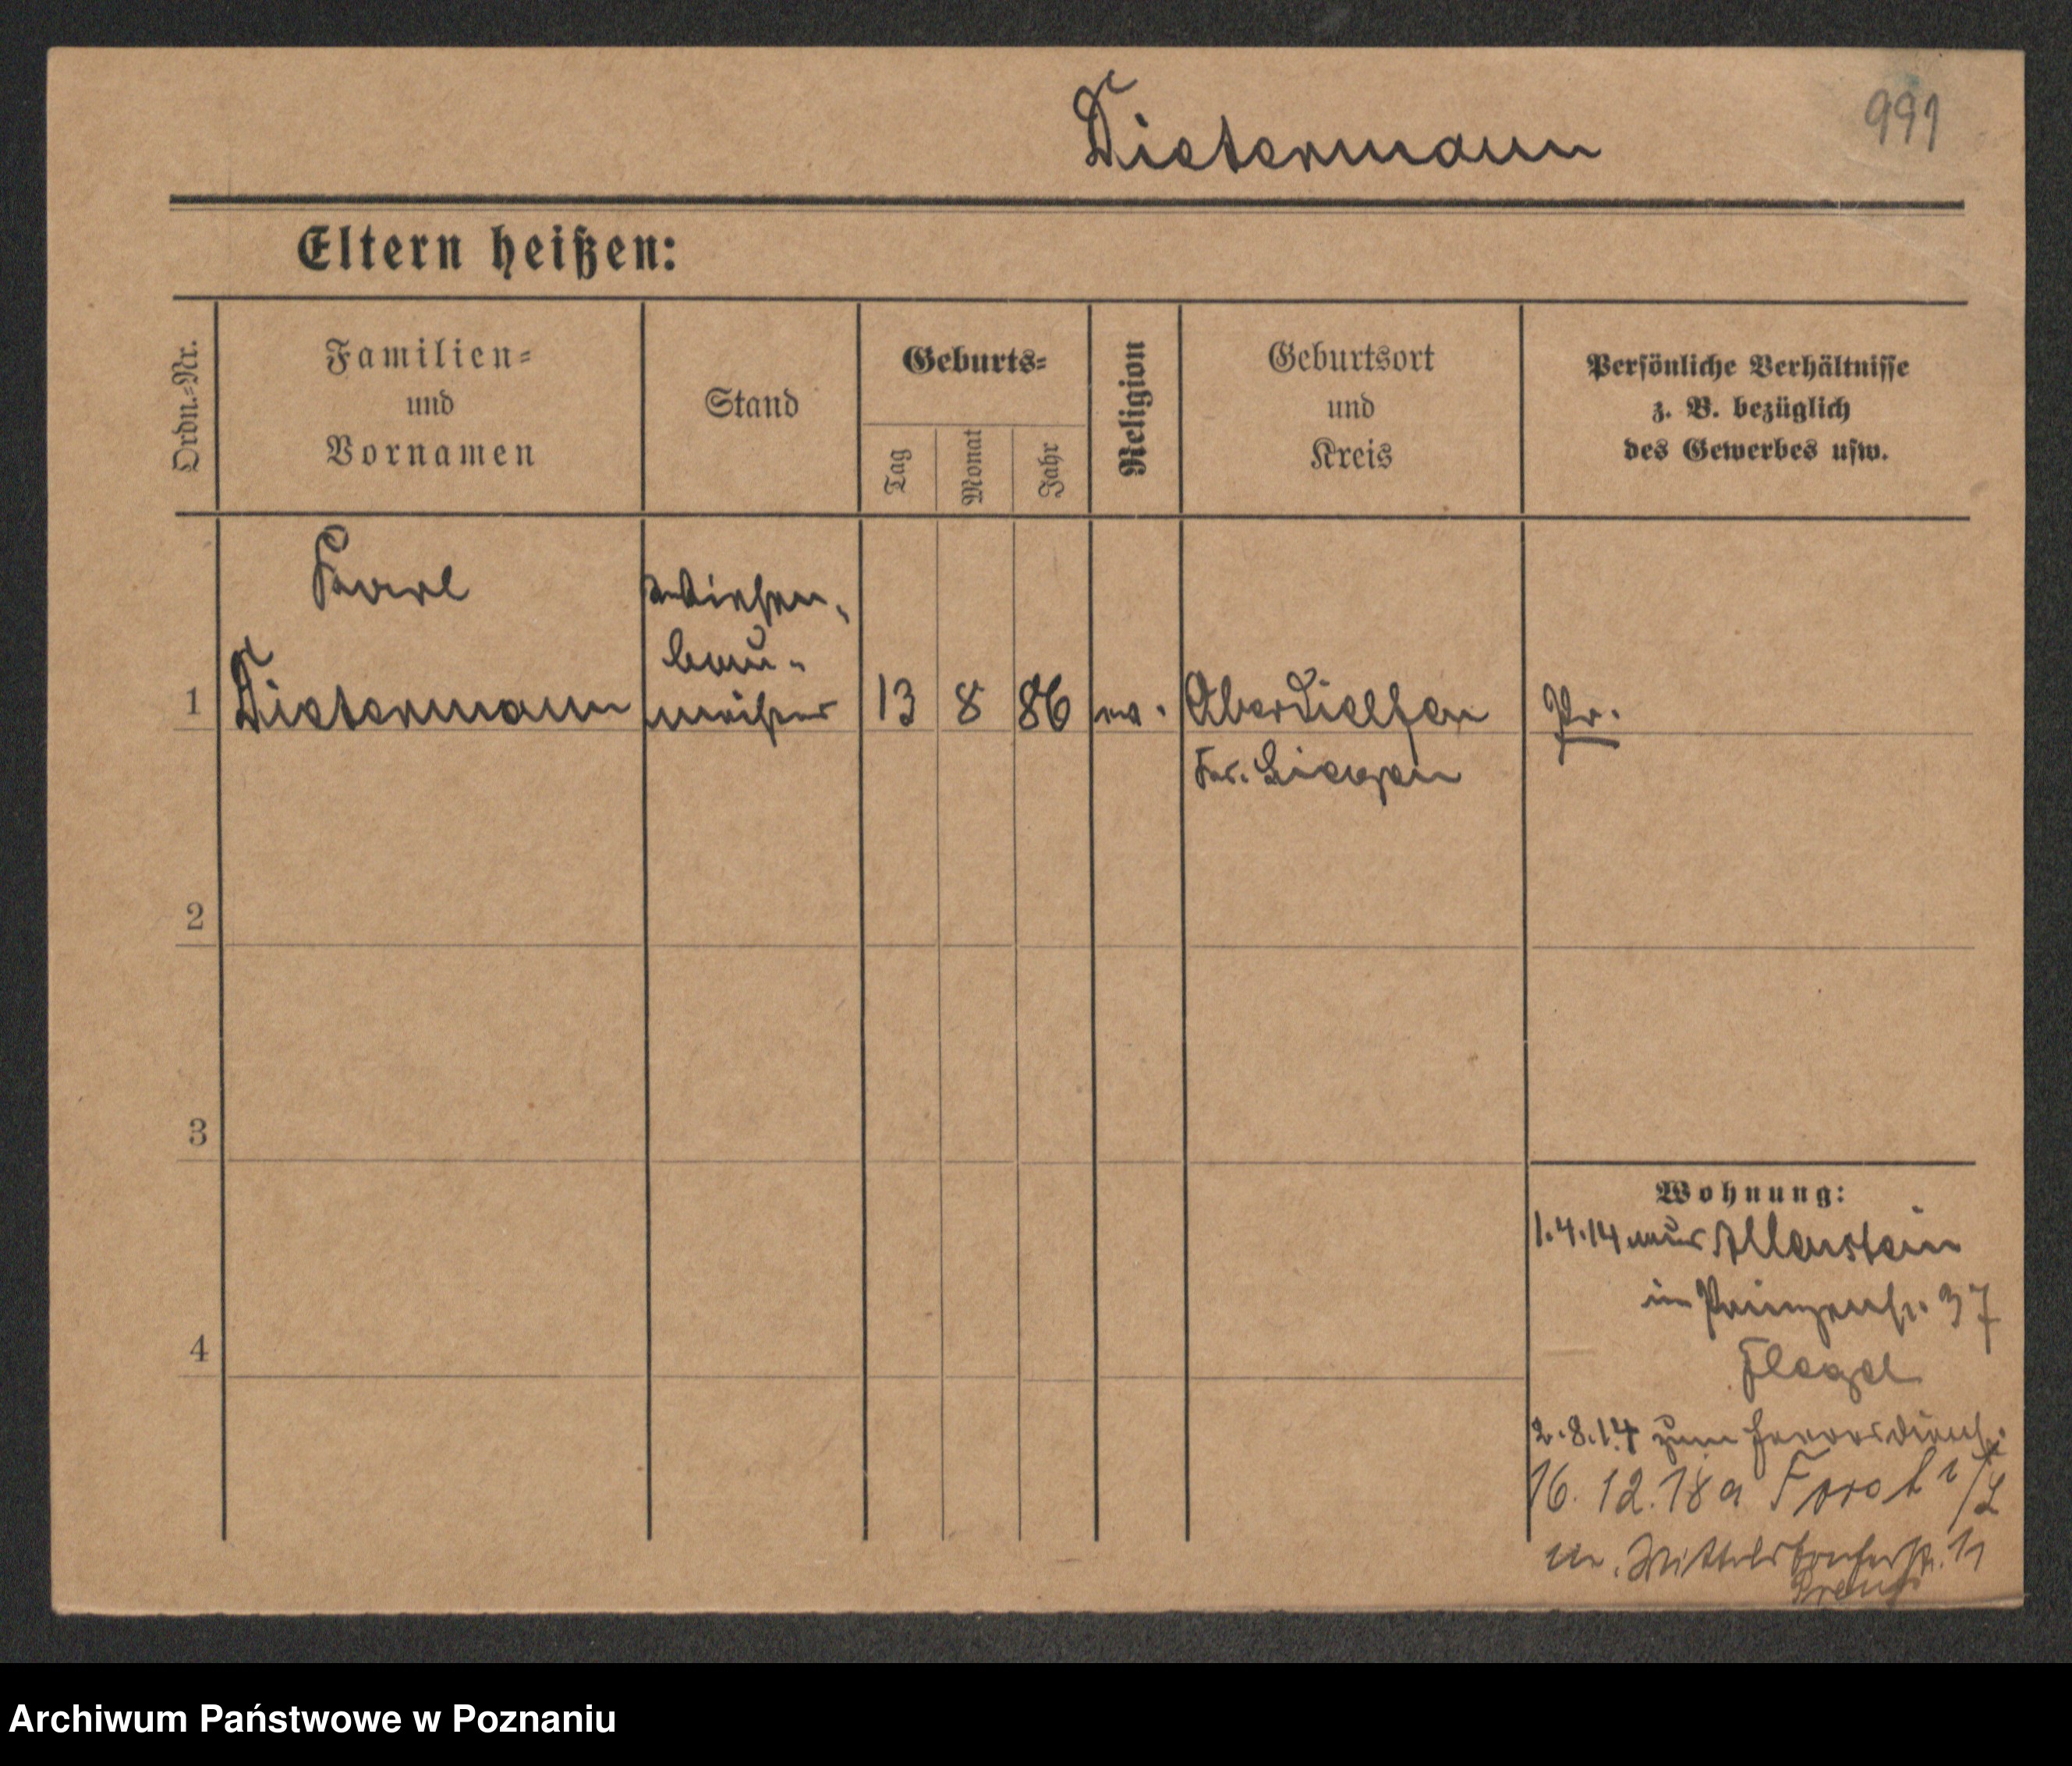 Dietermann
991
Eltern heißen:
Ordn.-Nr.
Familien-
und
Vornamen
Stand
Geburts-
Tag
Monat
Jahr
Religion
Geburtsort
und
Kreis
Persönliche Verhältnisse
z. B. bezüglich
des Gewerbes usw.
Karl
Wiesen-
bau-
1 Dietermann meister 13 8 86 ev. Oberdielfen Pr.
Kr. Siegen
2
3
4
Wohnung:
1.4.14 aus Allenstein
in Prinzenstr. 37
Flegel
2.8.14 zum Heeresdienst
16.12.18 a Forst i/L
Preuß
Archiwum Państwowe w Poznaniu